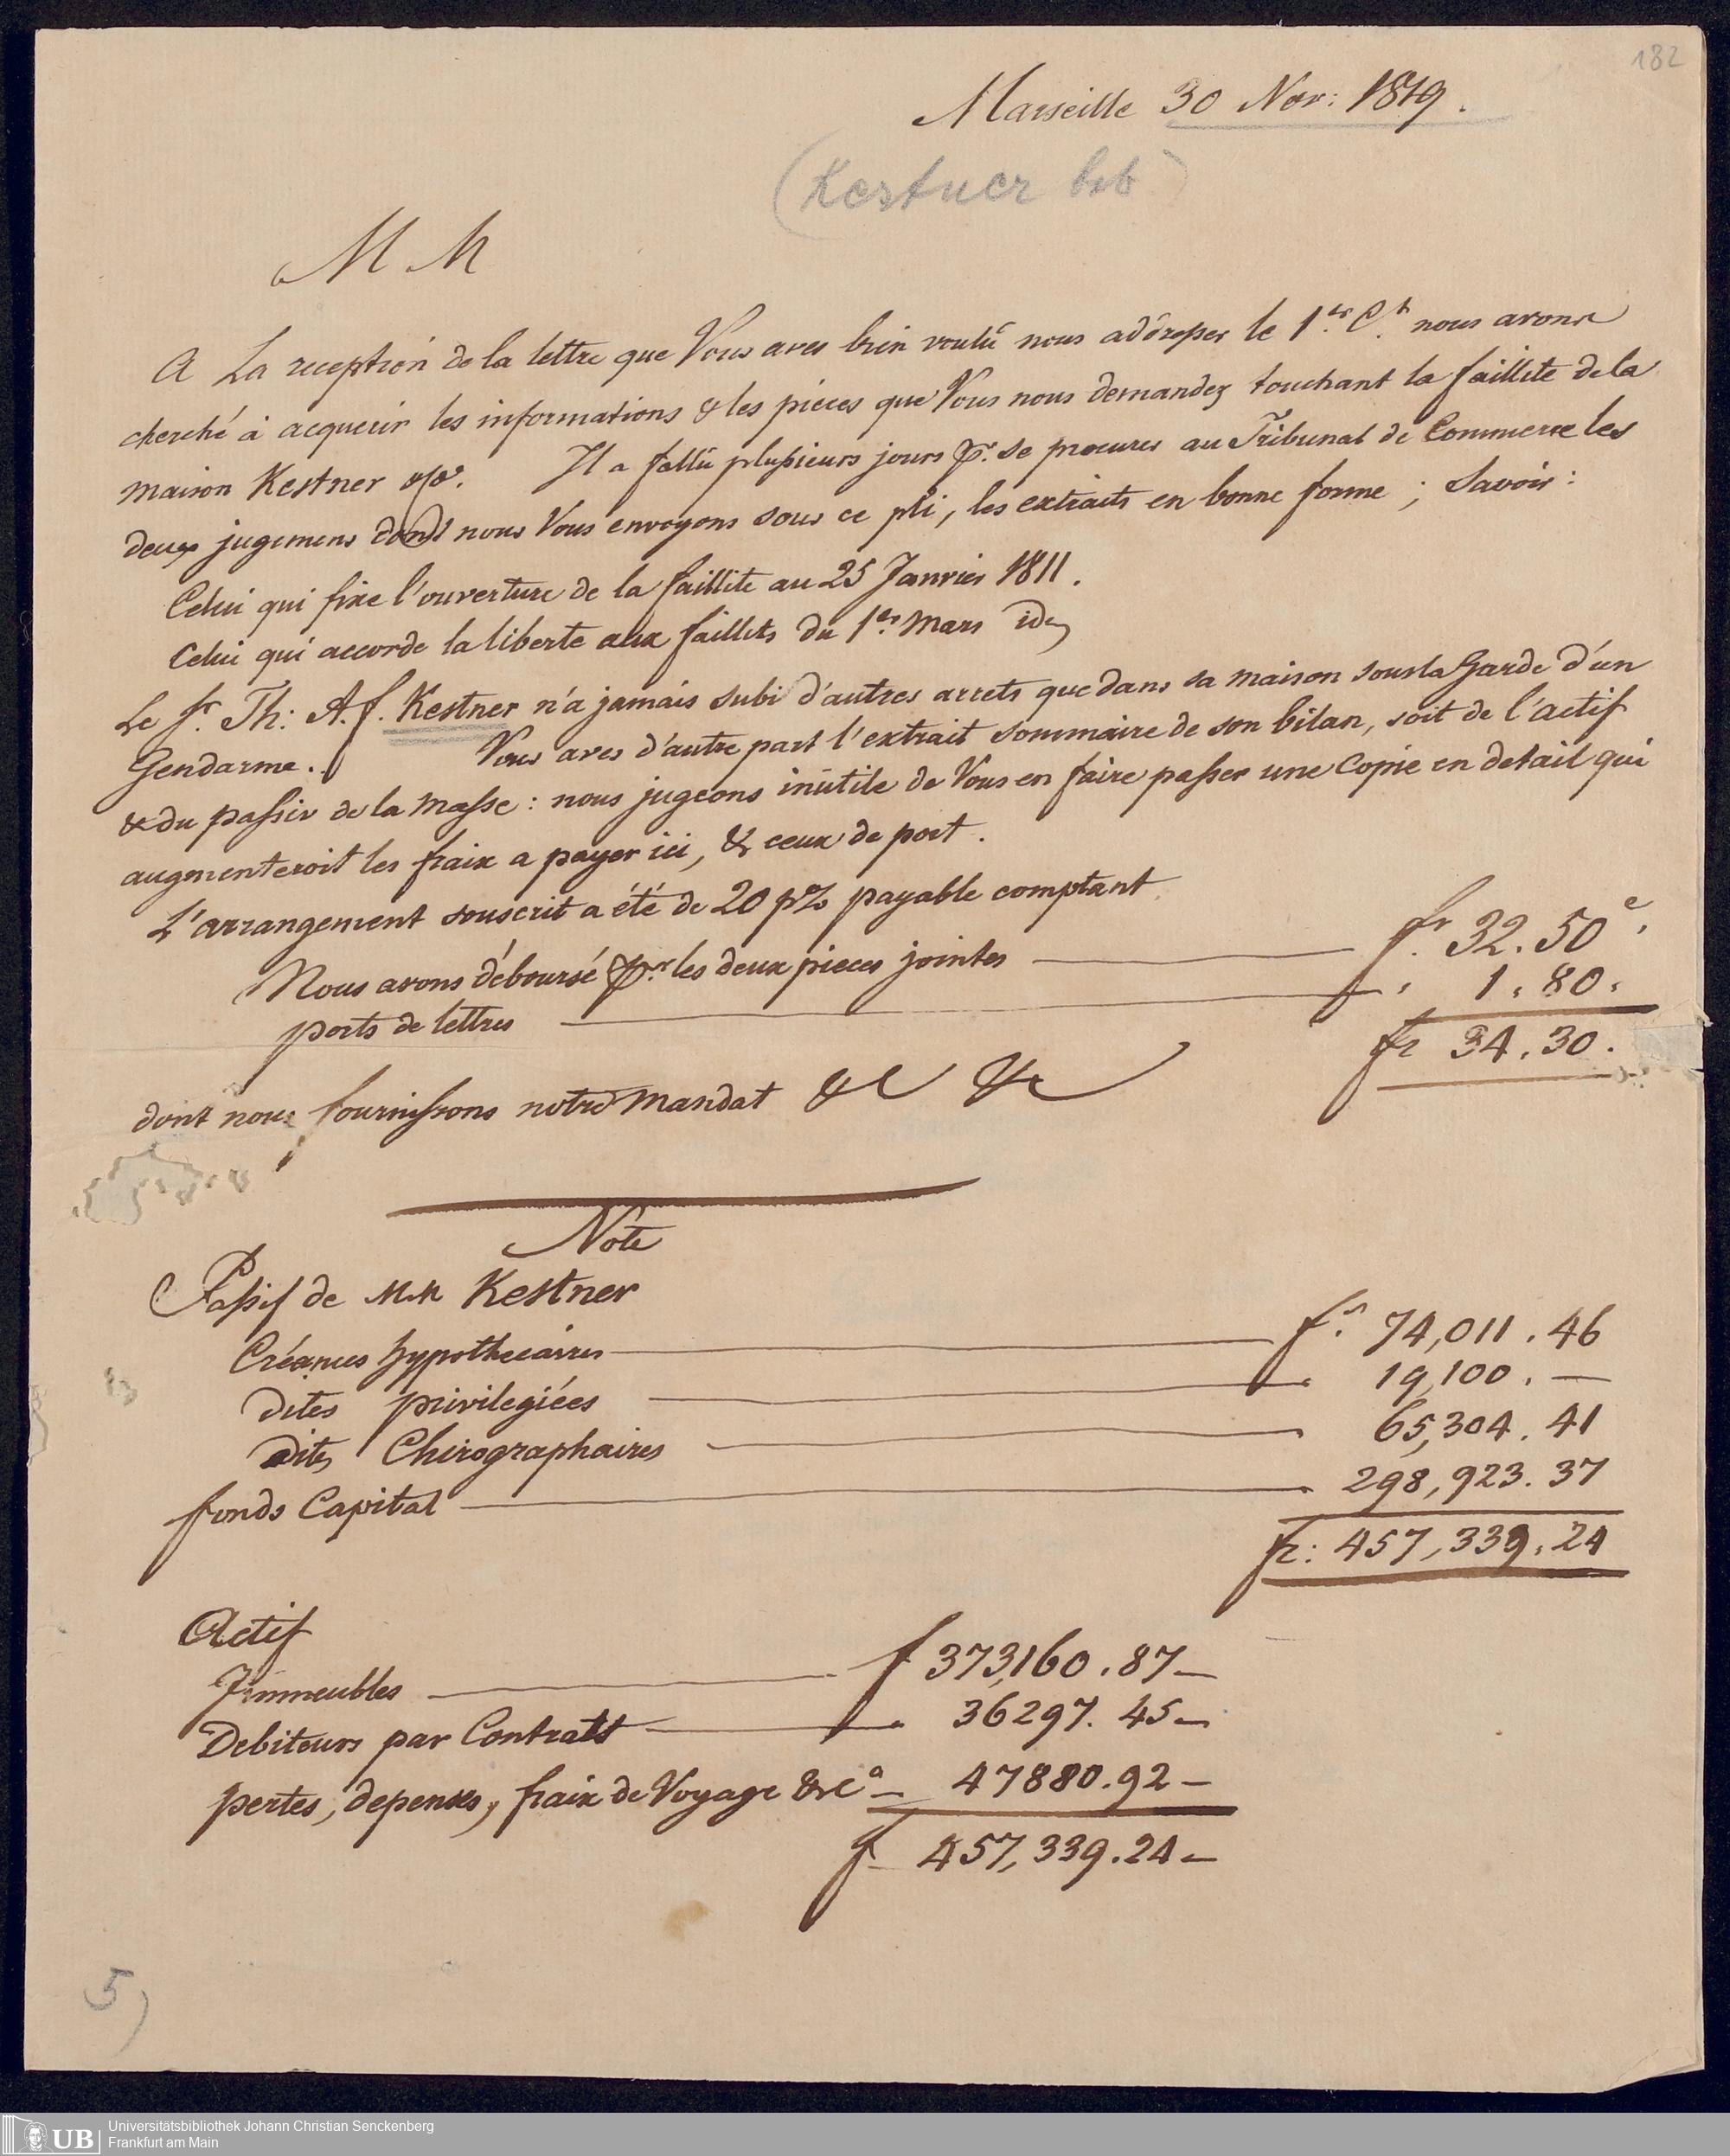 182
Marseille 30 Nov: 1819.
(Kestner
M M
A La reception de la lettre que Vous aves bien voulû nous addresser le 1.er C.t nous avons
cherché à acquerir les informations & les pieces que Vous nous demandez touchant la faillite de la
maison Kestner Il a fallû plusieurs jours pr. se procurer au Tribunal de Commerce les
deux jugemens dont nous Vous envoyons sous ce pli, les extraits en bonne forme ; Savoir :
Celui qui fixe l'ouverture de la faillite au 25 Janvier 1811.
Celui qui accorde la liberte aux faillits du 1er. Mars id
Le Sr. Th: A. f. Kestner n'a jamais subi d'autres arrets que dans sa maison sous la Garde d'un
Gendarme. Vous aves d'autre part l'extrait sommaire de son bilan, soit de l'actif
& du passiv de la Masse : nous jugeons inûtile de Vous en faire passer une Copie en detail qui
augmenteroit les fraix a payer ici, & ceux de port.
L'arrangement souscrit a été de 20 p% payable comptant
Nous avons déboursé pr. les deux pieces jointes fr. 32.50 c.
ports de lettres 1.80.
fr 34.30.
dont nous fournissons notre Mandat &c &c
Note
Passif de M.M Kestner
Créances hypothecaires fs. 74,011.46
dites privilegiées 19,100. —
dites Chirographaires 65,304.41
fonds Capital 298,923.37
fr: 457,339.24
Actif
Immeubles f 373,160.87—
Debiteurs par Contrats 36297.45—
pertes, depenses, fraix de Voyage &ca — 47880.92—
f 457,339.24—
5)
UB
Universitätsbibliothek Johann Christian Senckenberg
Frankfurt am Main